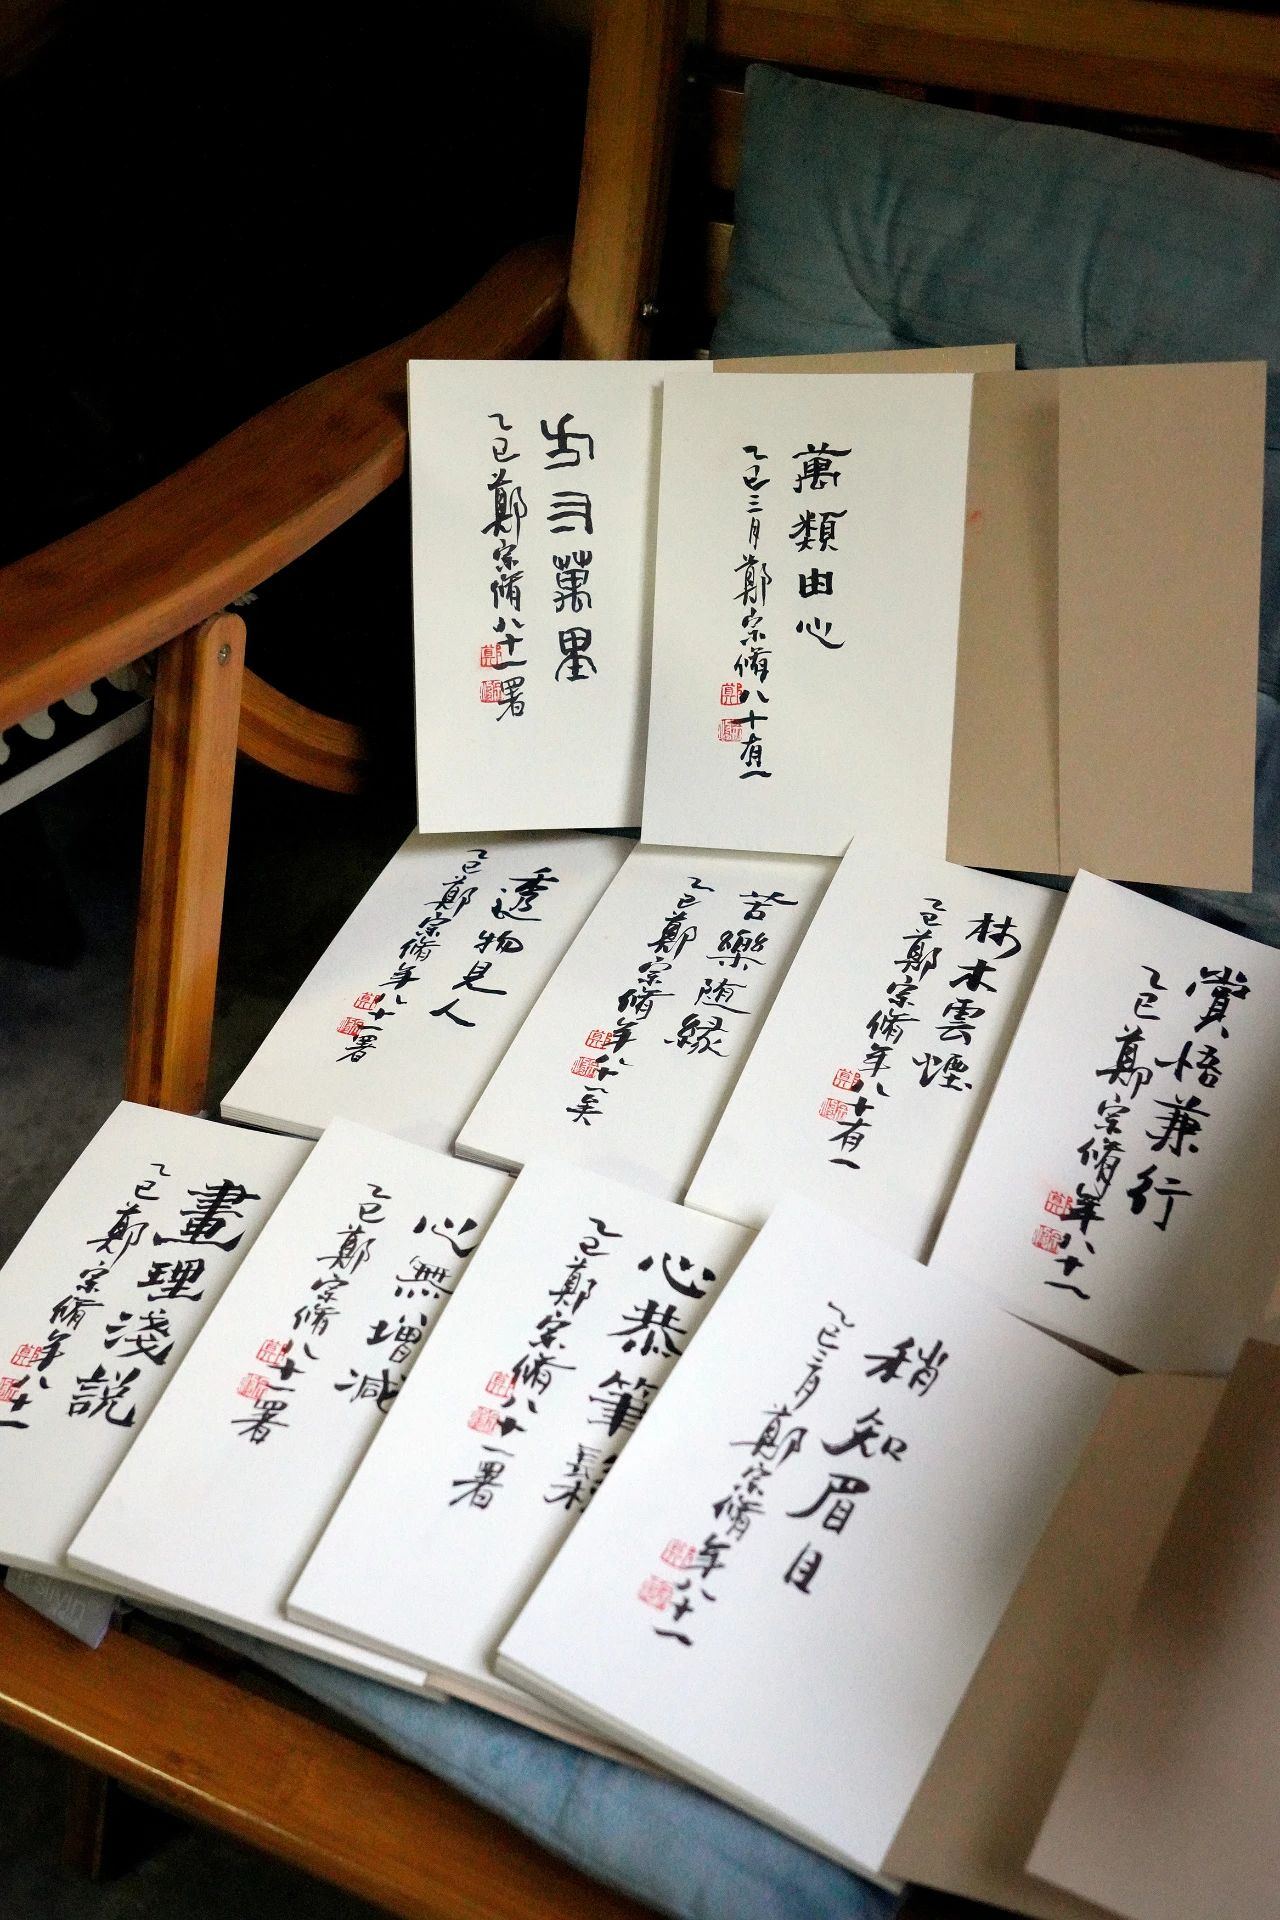 方寸萬里
乙巳鄭宗脩八十一署
萬類由心
乙巳三月鄭宗脩八十有一
透物見人
乙巳鄭宗脩年八十一署
苦樂随緣
乙巳鄭宗脩年八十一矣
林木雲煙
乙巳鄭宗脩年八十有一
賞悟兼行
乙巳鄭宗脩年八十一
畫理淺説
乙巳鄭宗脩年八十一
心無增減
乙巳鄭宗脩八十一署
心恭筆鬆
乙巳鄭宗脩八十一署
稍知眉目
乙巳三月鄭宗脩年八十一